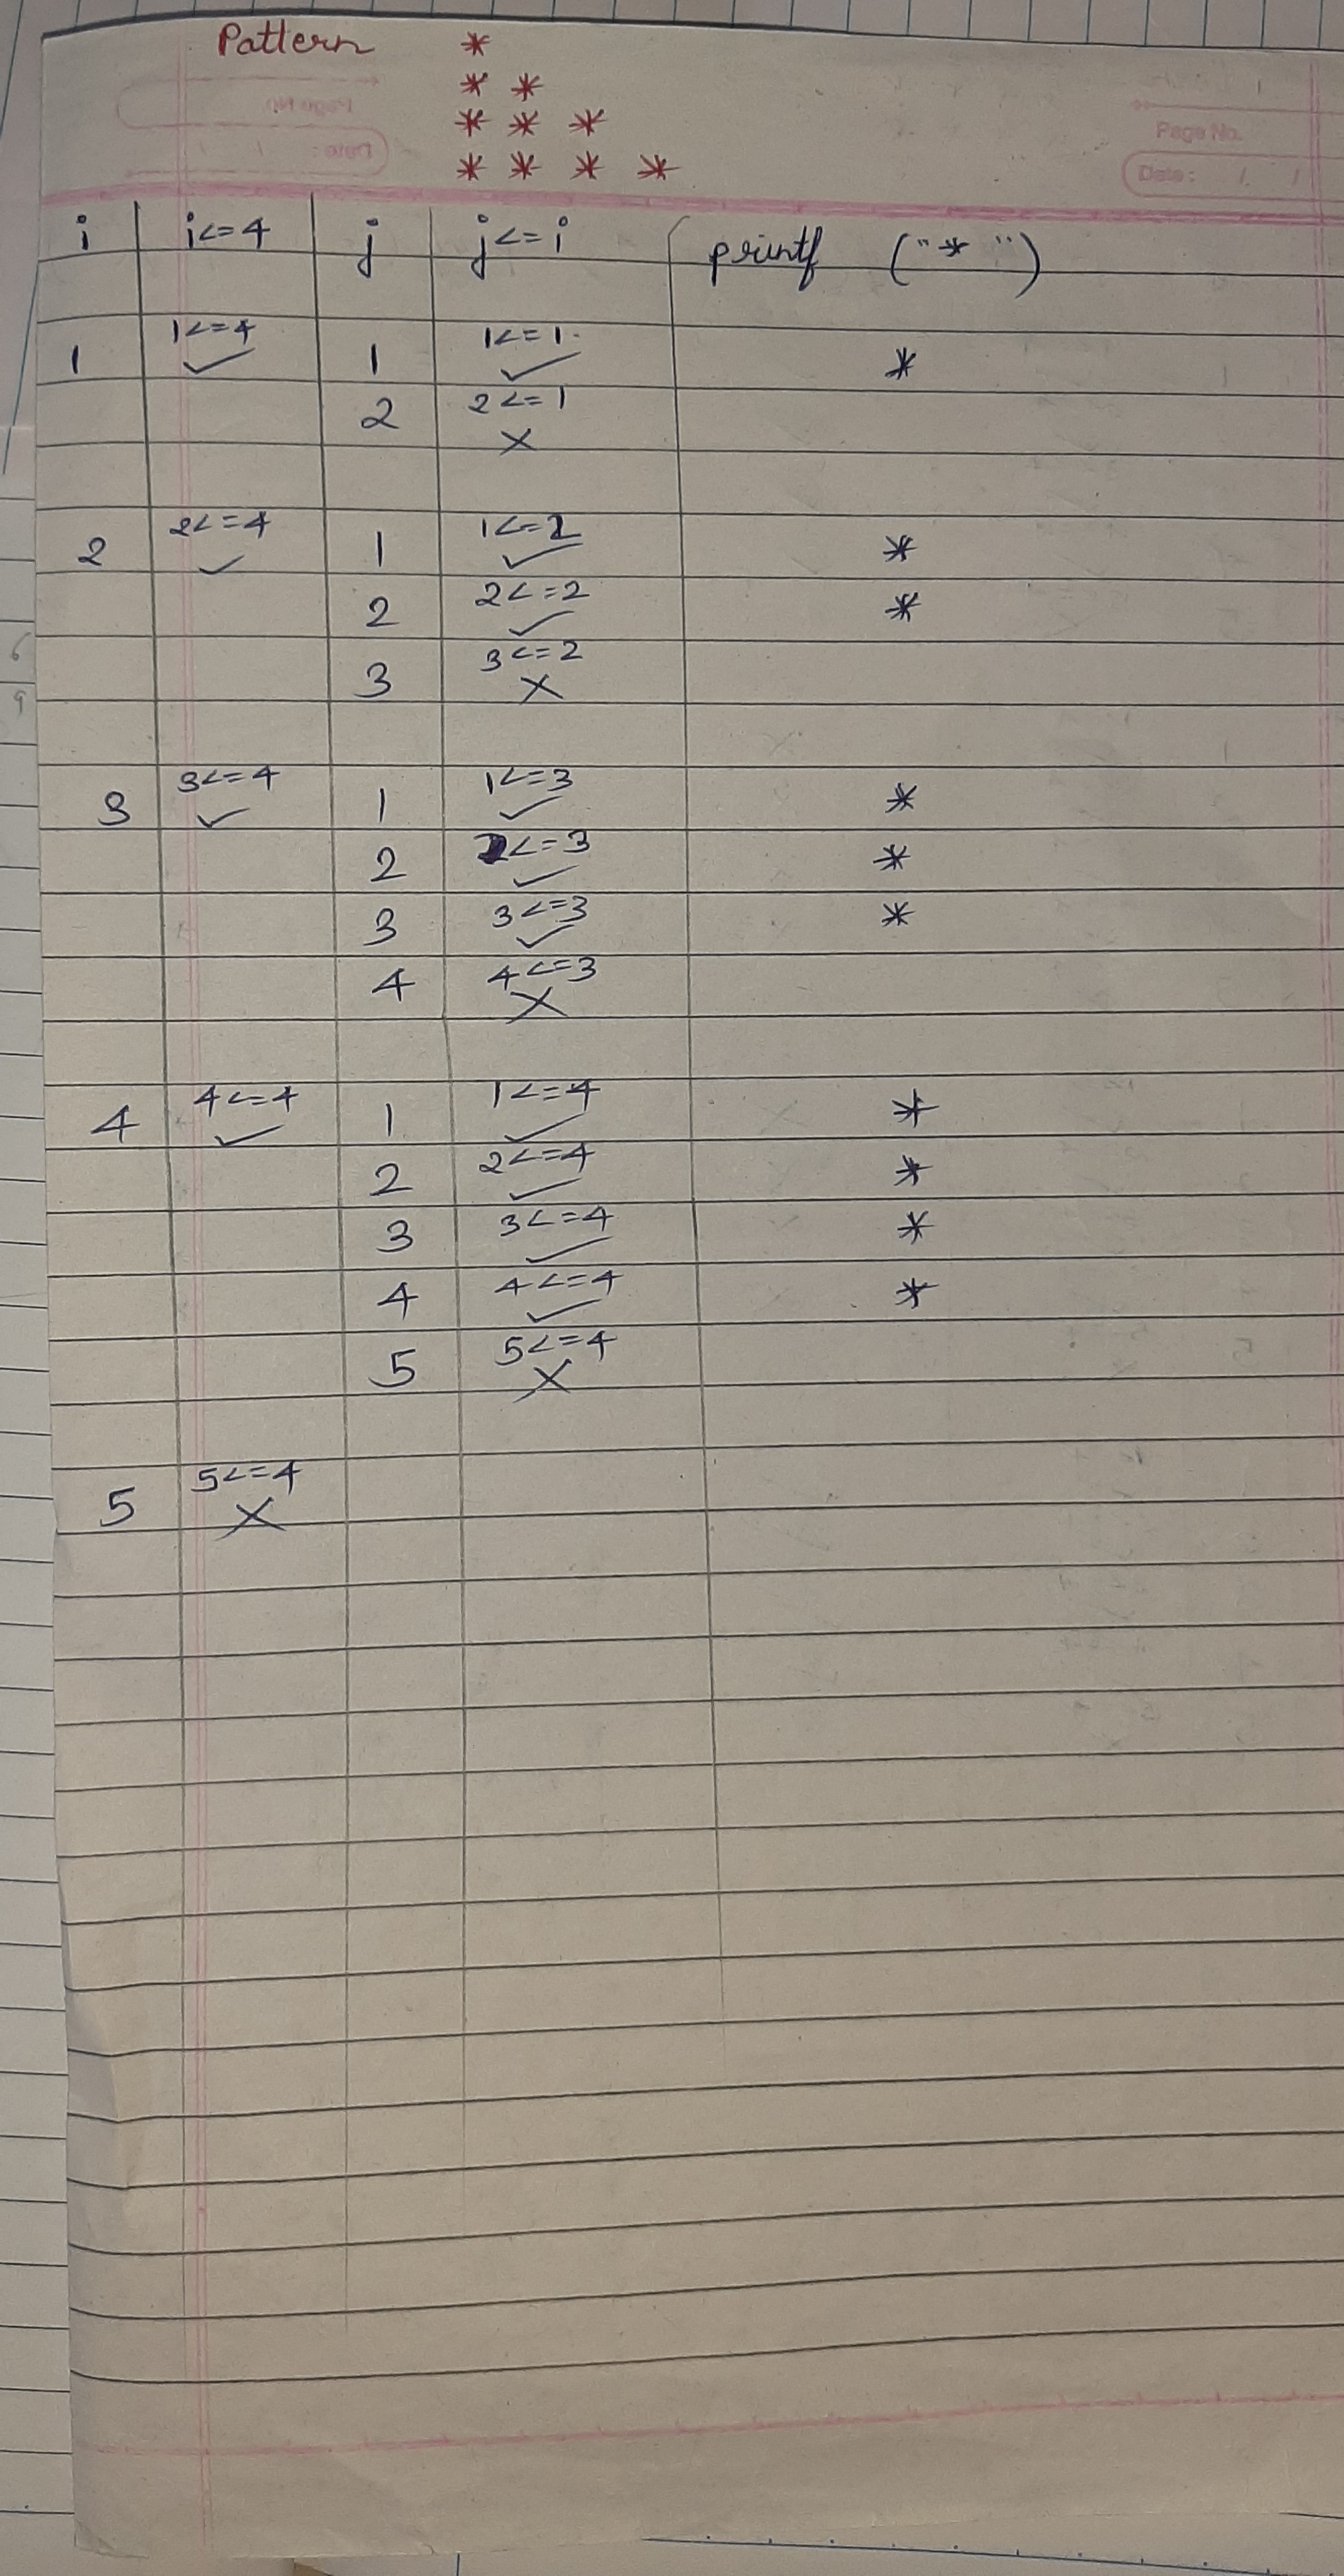 Pattern *
* *
* * *
* * * *
Page No.
Date: / /
i i<=4 j j<=i printf ("* ")
1<=4 1<=1
1 ✓ 1 ✓ *
2 2<=1
X
2<=4 1<=2
2 ✓ 1 ✓ *
2 2<=2 ✓ *
3 3<=2 X
3<=4 1<=3
3 ✓ 1 ✓ *
2 2<=3 ✓ *
3 3<=3 ✓ *
4 4<=3 X
4<=4 1<=4
4 ✓ 1 ✓ *
2 2<=4 ✓ *
3 3<=4 ✓ *
4 4<=4 ✓ *
5 5<=4 X
5<=4
5 X
6
9